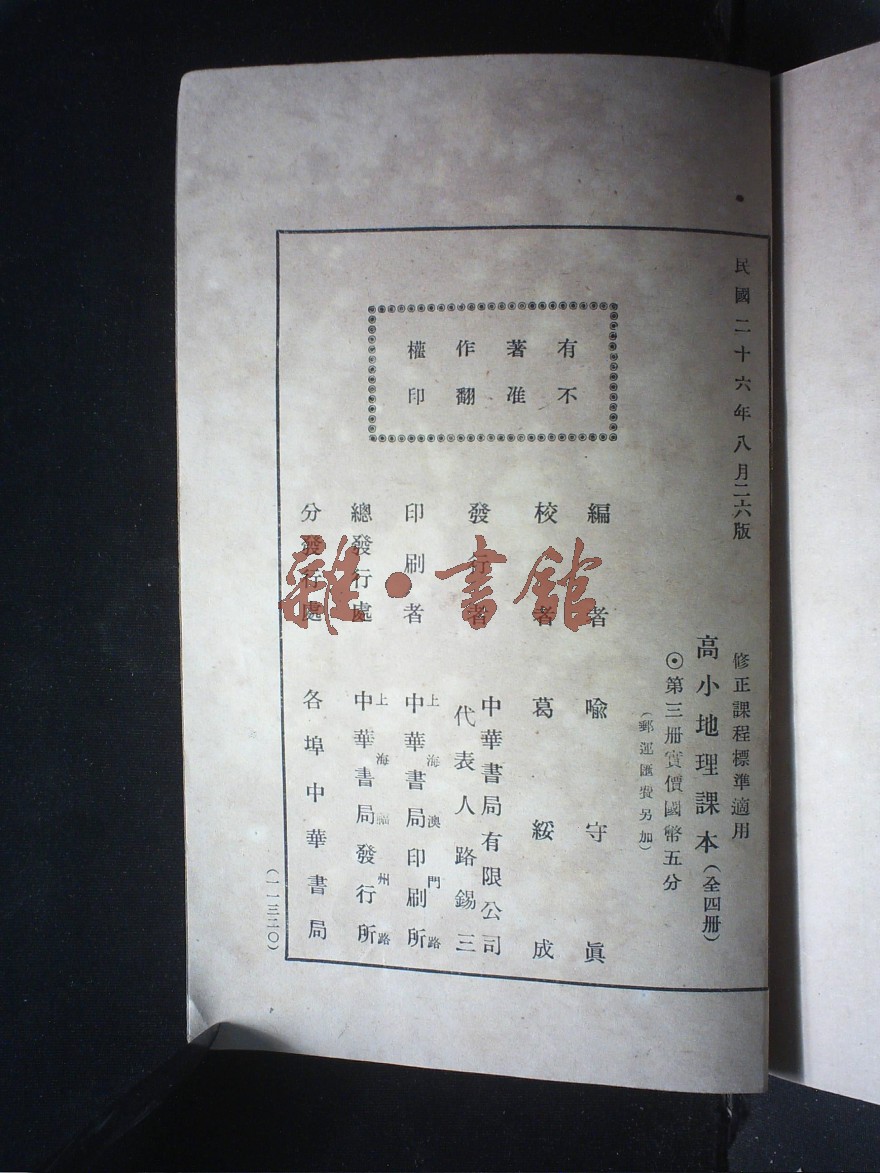 民國二十六年八月二六版
修正課程標準適用
高小地理課本（全四册）
⊙第三册實價國幣五分
（郵運匯費另加）
有著作權
不准翻印
編者 喩守眞
校者 葛綏成
發行者 中華書局有限公司
代表人路錫三
印刷者 上海澳門路
中華書局印刷所
總發行處 上海福州路
中華書局發行所
分發行處 各埠中華書局
（一一三二〇）
雜·書館